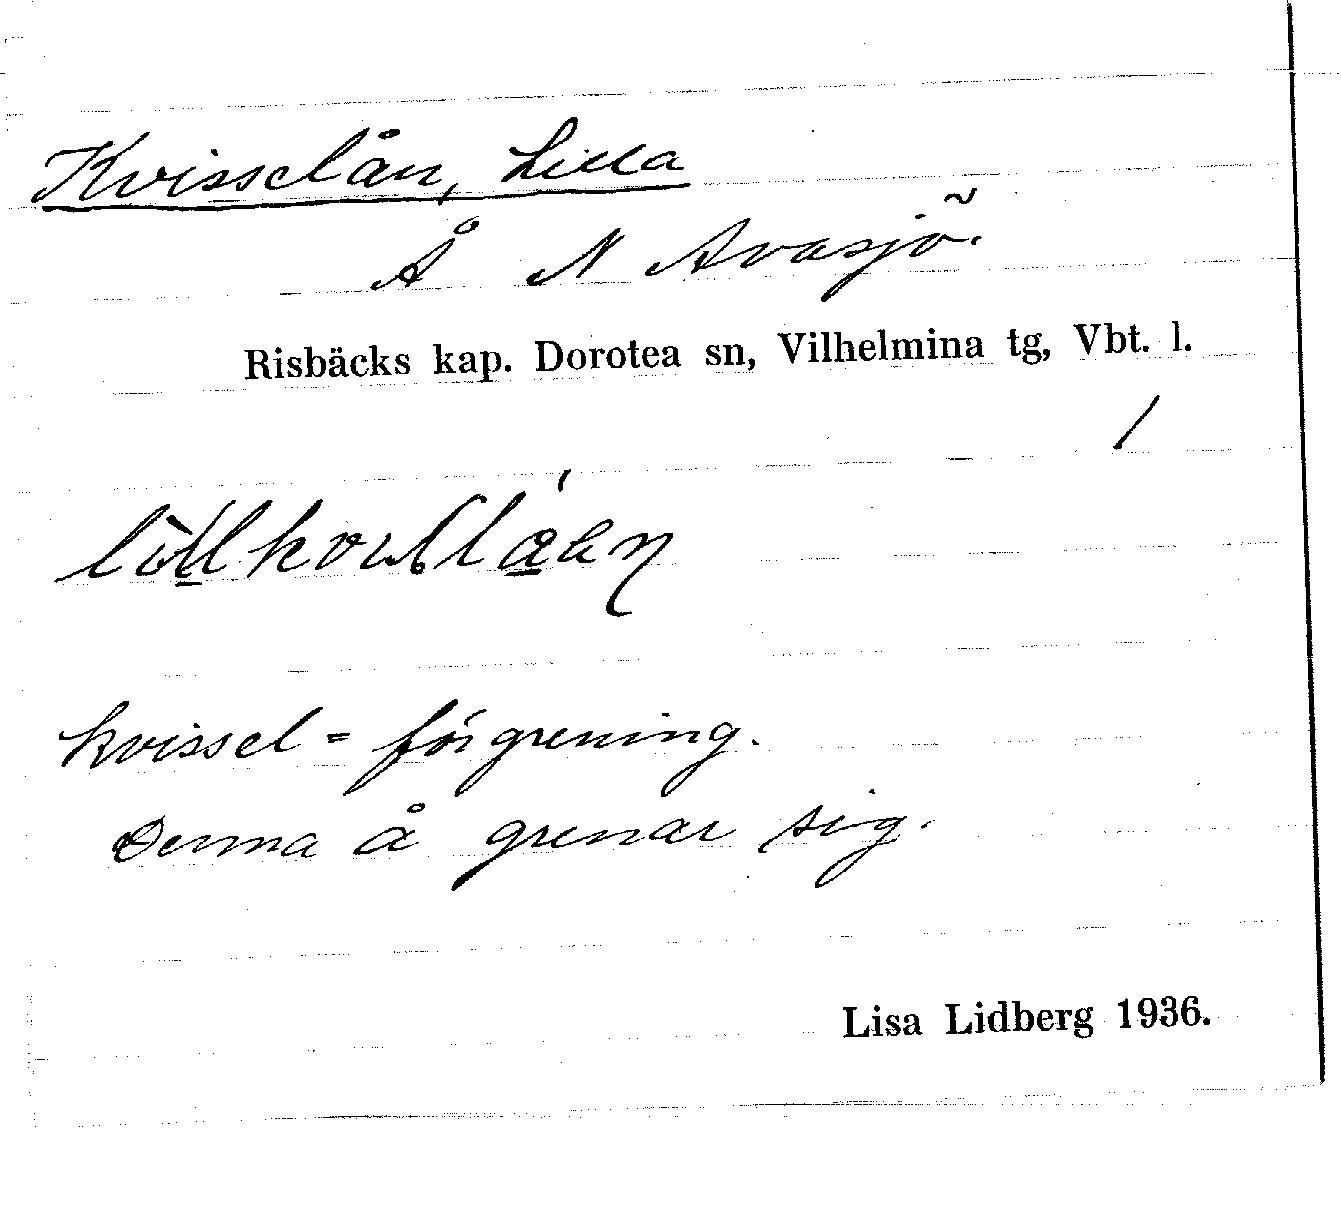 Kvisselån, Lilla
Å N Avasjö.
Risbäcks kap. Dorotea sn, Vilhelmina tg, Vbt. l.
/
kvissel = förgrening.
Denna å grenar sig.
Lisa Lidberg 1936.